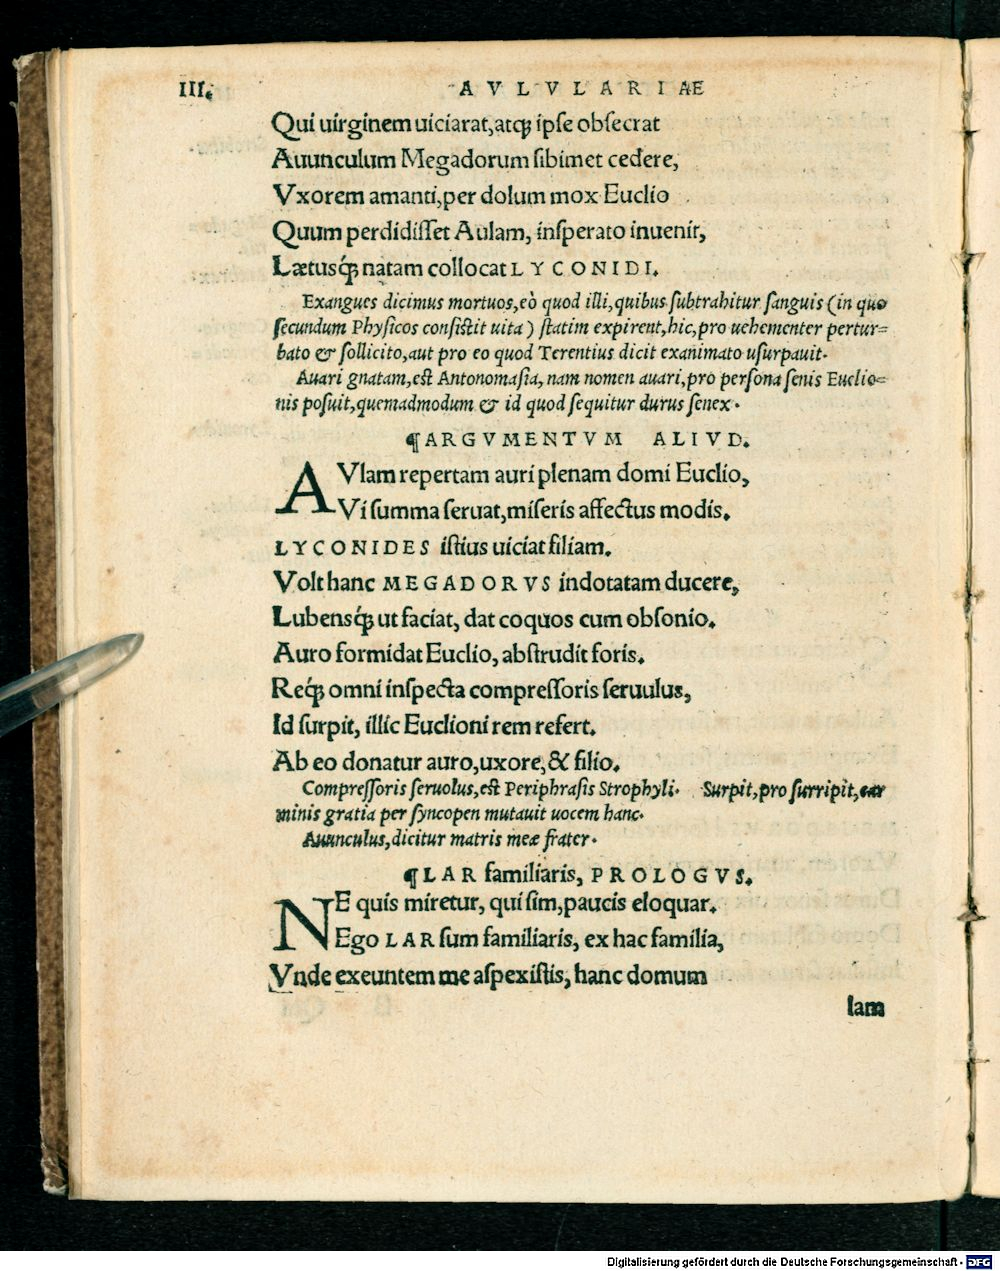 III.
AVLVLARIAE
Qui uirginem uiciarat,atqꝫ ipse obsecrat
Auunculum Megadorum sibimet cedere,
Vxorem amanti,per dolum mox Euclio
Quum perdidisset Aulam, insperato inuenit,
Lætusq́ꝫ natam collocat LYCONIDI.
Exangues dicimus mortuos,eò quod illi,quibus subtrahitur sanguis (in quo
secundum Physicos consistit uita) statim expirent,hic,pro uehementer pertur=
bato & sollicito,aut pro eo quod Terentius dicit exanimato usurpauit.
Auari gnatam,est Antonomasia, nam nomen auari,pro persona senis Euclio=
nis posuit,quemadmodum & id quod sequitur durus senex.
¶ARGVMENTVM ALIVD.
AVlam repertam auri plenam domi Euclio,
Vi summa seruat,miseris affectus modis.
LYCONIDES istius uiciat filiam.
Volt hanc MEGADORVS indotatam ducere,
Lubensq́ꝫ ut faciat, dat coquos cum obsonio.
Auro formidat Euclio, abstrudit foris.
Req́ꝫ omni inspecta compressoris seruulus,
Id surpit, illic Euclioni rem refert.
Ab eo donatur auro,uxore,& filio.
Compressoris seruolus,est Periphrasis Strophyli. Surpit,pro surripit,car
minis gratia per syncopen mutauit uocem hanc.
Auunculus,dicitur matris meæ frater.
¶LAR familiaris, PROLOGVS.
NE quis miretur, qui sim,paucis eloquar.
Ego LAR sum familiaris, ex hac familia,
Vnde exeuntem me aspexistis, hanc domum
Iam
Digitalisierung gefördert durch die Deutsche Forschungsgemeinschaft - DFG